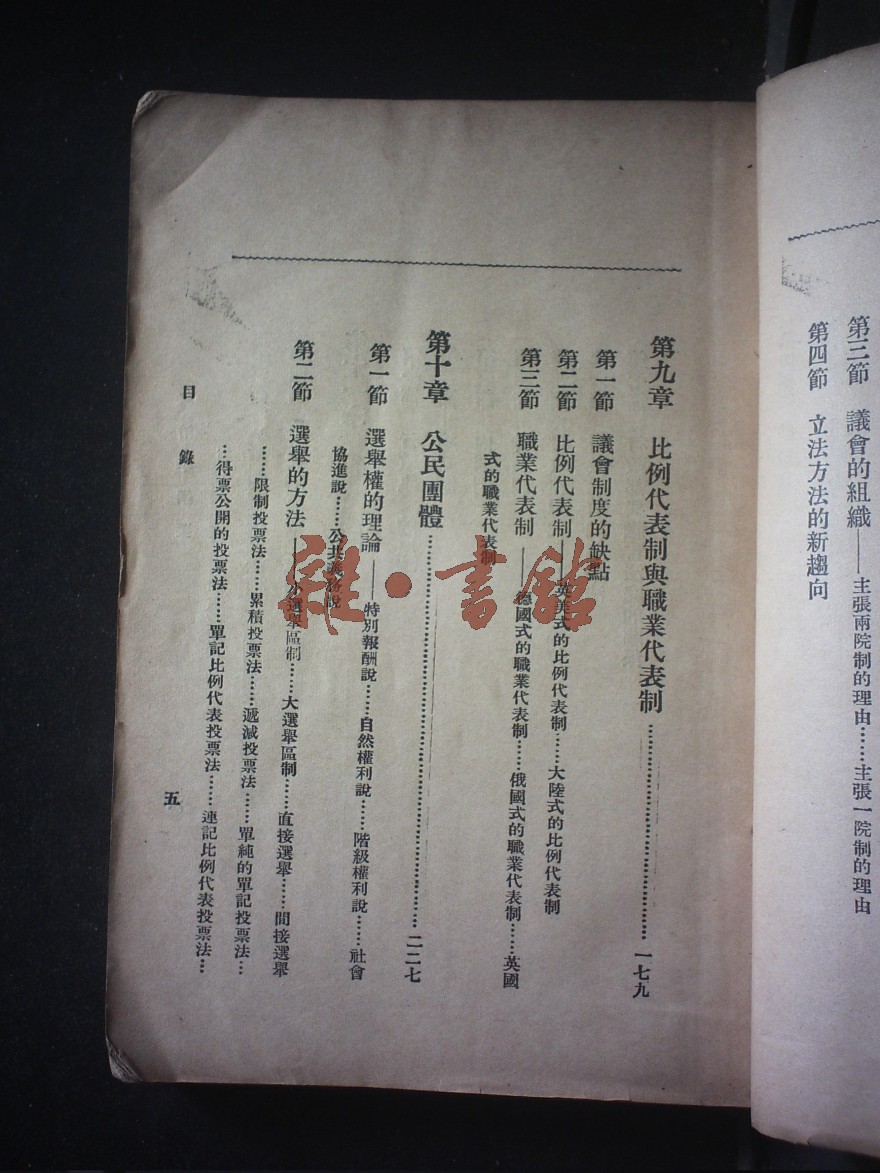 第三節 議會的組織——主張兩院制的理由……主張一院制的理由
第四節 立法方法的新趨向
第九章 比例代表制與職業代表制……一七九
第一節 議會制度的缺點
第二節 比例代表制——英美式的比例代表制……大陸式的比例代表制
第三節 職業代表制——德國式的職業代表制……俄國式的職業代表制……英國
式的職業代表制
第十章 公民團體……二二七
第一節 選舉權的理論——特別報酬說……自然權利說……階級權利說……社會
協進說……公共義務說
第二節 選舉的方法——小選舉區制……大選舉區制……直接選舉……間接選舉
……限制投票法……累積投票法……遞減投票法……單純的單記投票法…
…得票公開的投票法……單記比例代表投票法……連記比例代表投票法…
目錄
五
雜·書館